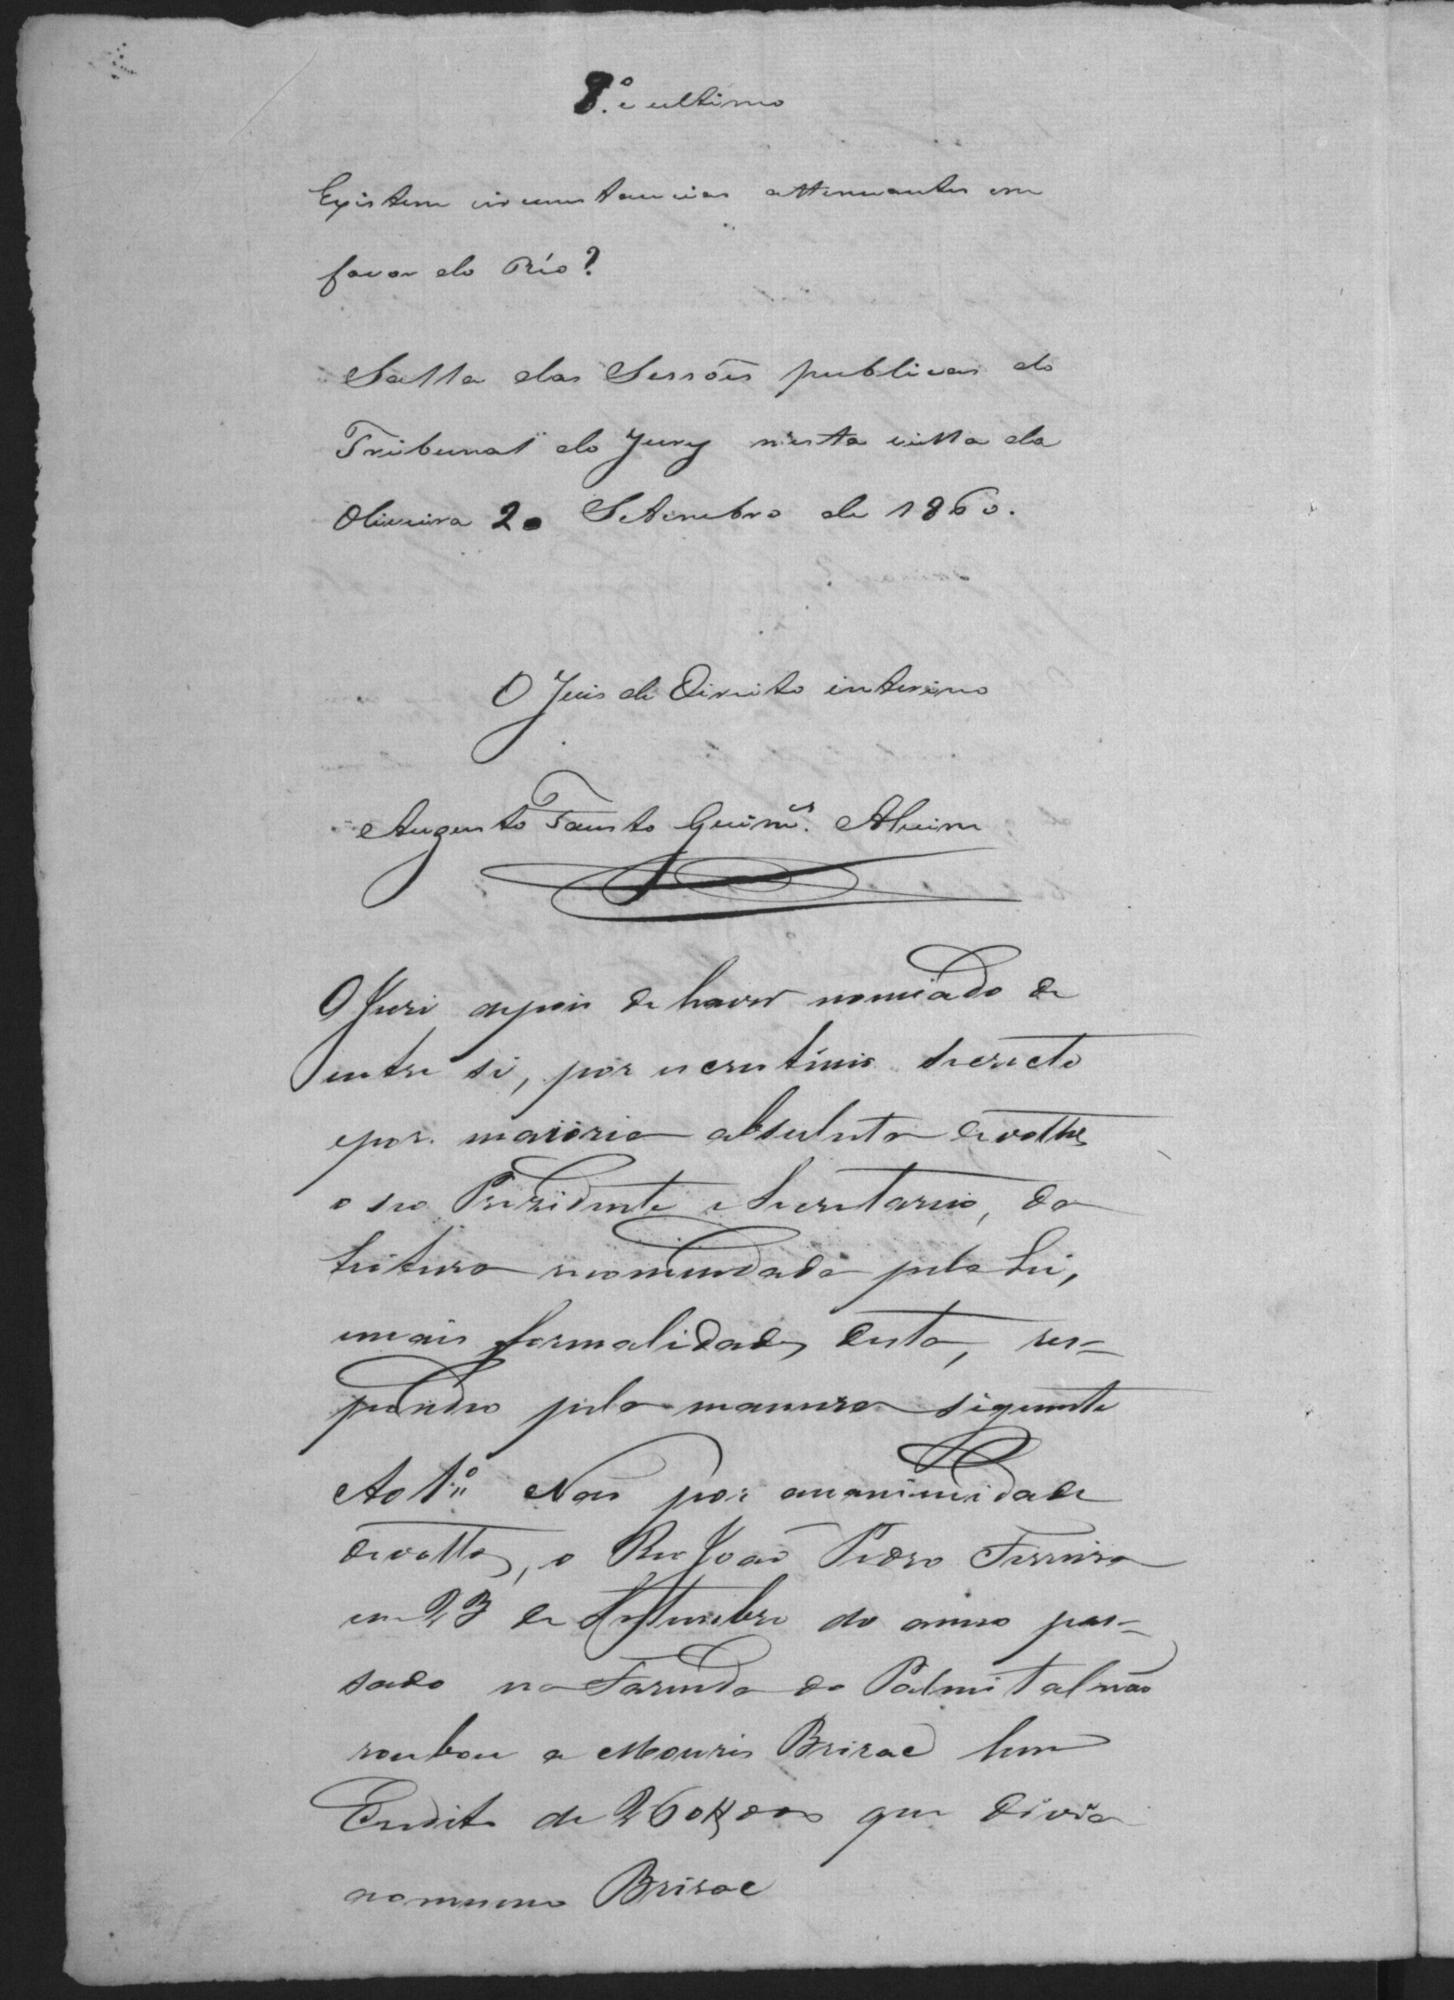 8.º e ultimo
Existem circunstancias attenuantes em
favor do Réo?
Salla das Sessões publicas do
Tribunal do Jury nesta villa da
Oliveira 20 Setembro de 1860.
O Juis de Direito interino
Augusto Fausto Guimes. Alvim
O Juri depois de haver nomiado de
entre si, por escrutinio secreto
e por maioria absoluta de vottos
o seo Presidente e Secretario, da
leitura recomendada pela Lei,
e mais formalidades desta, res=
pondeo pela maneira siguente
Ao 1º Não por unanimidade
de vottos, o Reo João Pedro Ferreira
em 23 de Settembro do anno pas=
sado na Fazenda do Palmital não
roubou a Mouris Brisac hum
Credito de 260$000 que divia
ao mesmo Brisac